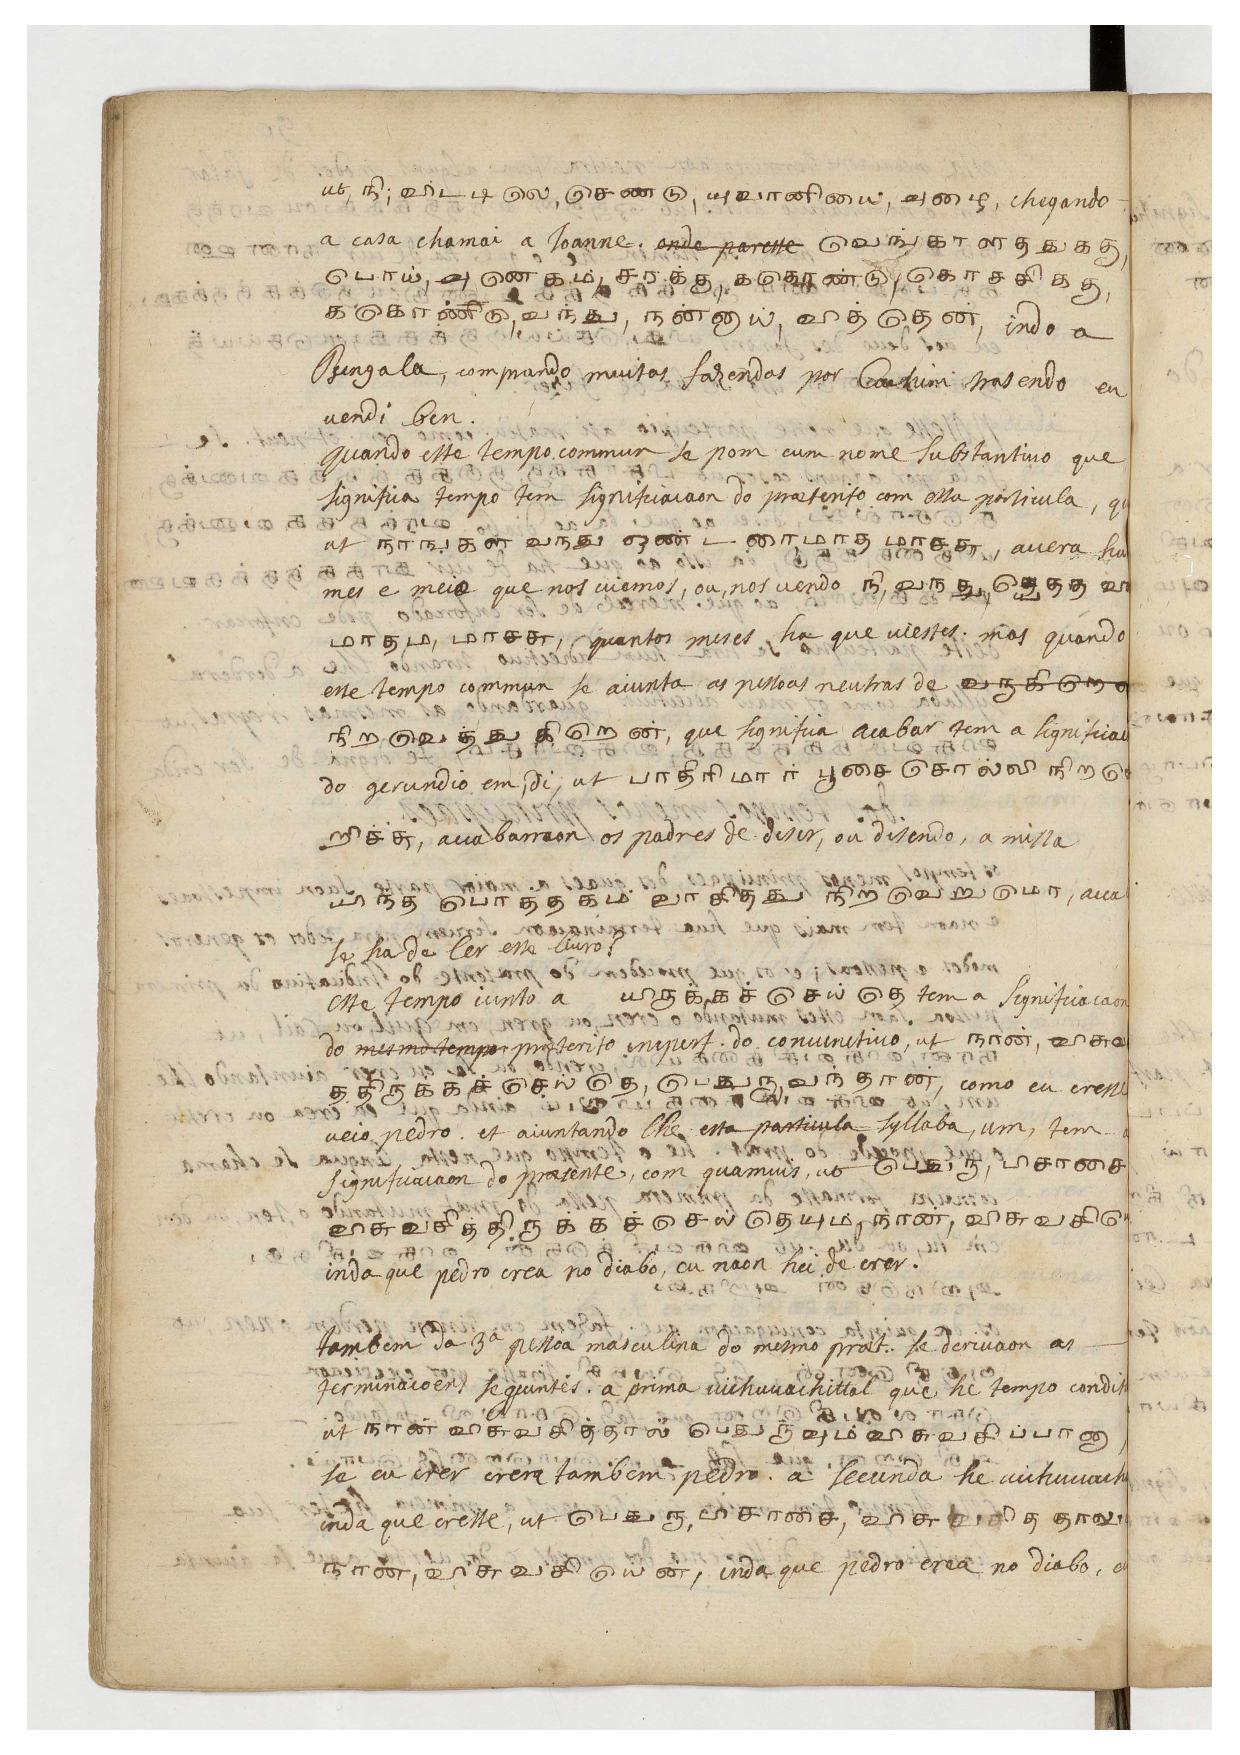 ut, நி; விடடிலெ, செண்டு, யுவானியை, அழை, chegando
a casa chamai a Joanne. onde paresse வெங்காளததுகது,
போய், அனெகம், சரக்கு, கடுகொண்டு, கொசசிகது,
கடுகொண்டு, வந்து, நன்னாய், வித்தென், indo a
Bengala, comprando muitas fazendas por Cochim trasendo eu
vendi ben.
quando esse tempo commun se pom cum nome substantivo que
significa tempo tem significacaon do praeterito com essa particula, qu
ut நாங்கள வந்து ஒண்டரைமாத மாசசு, avera hu
mes e meio que nos viemos, ou, nos vendo நி, வநது, எததத
மாதம, மாசசு, quantos meses ha que viestes. mas quando
esse tempo commun se aiunta as pessoas neutras de வருகிறெ
நிறவெத்துகிறென், que significa acabar tem a significac
do gerundio em, di, ut பாதிரிமார் பூசை சொல்லி நிறவெ
றிச்சு, acabarraon os padres de diser, ou disendo, a missa
யிந்த பொத்தகம் வாசித்து நிறவெறுமொ, aca
se ha de ler esse livro?
esse tempo iunto a யிருக்கச்செய்தெ tem a significacaon
do mesmo tempo praeterito imperf. do coniunctivo, ut நான், விசுவ
தத்திருக்கச்செய்தெ, பெதுரு, வந்தான், como eu cresse
veio pedro. et aiuntando lhe esta particula syllaba, um, tem
significacaon do praesente, com quamvis, ut பெதுரு, பிசாசை
விசுவசித்திருக்கச்செய்தெயும், நான், விசுவசி
inda que pedro crea no diabo, eu naon hei de crer.
tambem da 3ª pessoa masculina do mesmo praet. se derivaon as
terminacoens sequintes. a prima vichuvachittal que he tempo condit
ut நான் விசுவசித்தால் பெதுருவும் விசுவசிப்பான,
se eu crer crera tambem pedro. a secunda he vichuvach
inda que cresse, ut பெதுரு, பிசாசை, விசுவசிததாலு
நான், விசுவசியென், inda que pedro crea no diabo, e